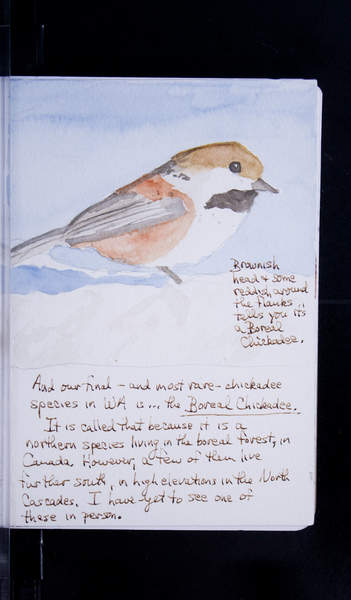 Brownish
head & some
reddish around
the flanks
tells you it's
a Boreal
Chickadee.
And our final - and most rare - chickadee
species in WA is... the Boreal Chickadee.
It is called that because it is a
northern species living in the boreal forest, in
Canada. However, a few of them live
further south, in high elevations in the North
Cascades. I have yet to see one of
these in person.